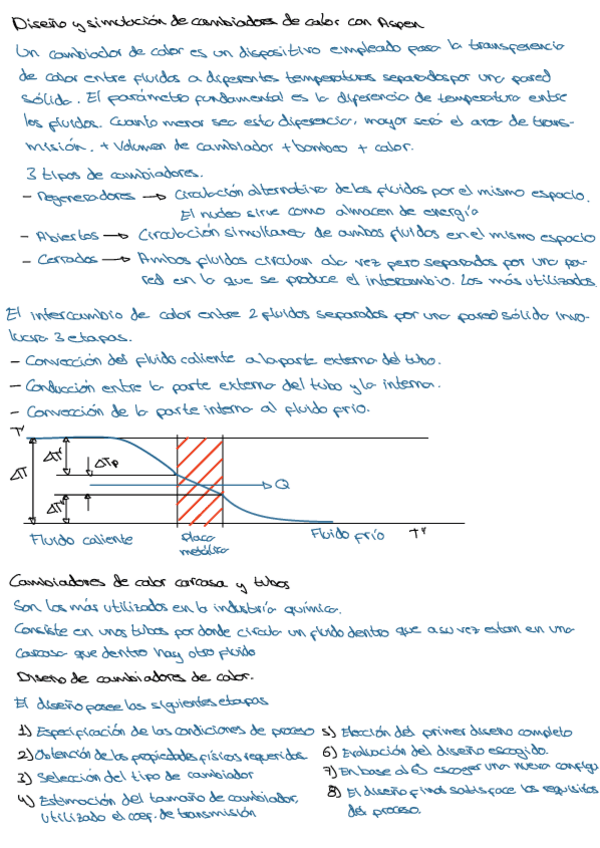 Diseño y simulación de cambiadores de calor con Aspen
Un cambiador de calor es un dispositivo empleado para la transferencia
de calor entre fluidos a diferentes temperaturas separados por una pared
sólida. El parámetro fundamental es la diferencia de temperatura entre
los fluidos. Cuanto menor sea esta diferencia, mayor será el area de trans-
misión. + Volumen de cambiador + bombeo + calor.
3 tipos de cambiadores.
- Regeneradores → Circulación alternativa de los fluidos por el mismo espacio.
El nucleo sirve como almacen de energía
- Abiertos → Circulación simultanea de ambos fluidos en el mismo espacio
- Cerrados → Ambos fluidos circulan a la vez pero separados por una pa-
red en la que se produce el intercambio. Los más utilizados.
El intercambio de calor entre 2 fluidos separados por una pared sólida invo-
lucra 3 etapas.
- Convección del fluido caliente a la parte externa del tubo.
- Conducción entre la parte externa del tubo y la interna.
- Convección de la parte interna al fluido frío.
T'
ΔT'
ΔTp
ΔT
Q
ΔT''
Fluido caliente
placa
metálica
Fluido frío
T''
Cambiadores de calor carcasa y tubos
Son los más utilizados en la industria química.
Consiste en unos tubos por donde circula un fluido dentro que a su vez estan en una
carcasa que dentro hay otro fluido
Diseno de cambiadores de calor.
El diseño posee las siguientes etapas
1) Especificación de las condiciones de proceso
2) Obtención de las propiedades físicas requeridas.
3) Selección del tipo de cambiador
4) Estimación del tamaño de cambiador,
utilizado el coef. de transmisión
5) Elección del primer diseno completo
6) Evaluación del diseño escogido.
7) En base al 6) escoger una nueva configu
8) El diseño final satisface los requisitos
del proceso.